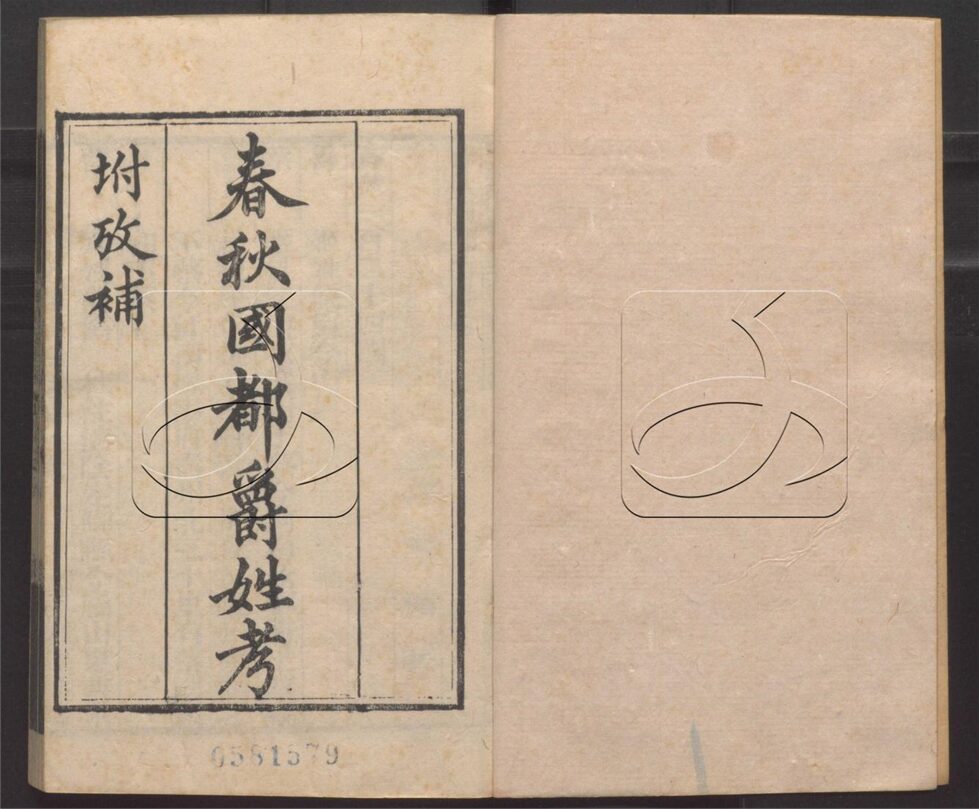 春秋國都爵姓考
坿攷補
0581579